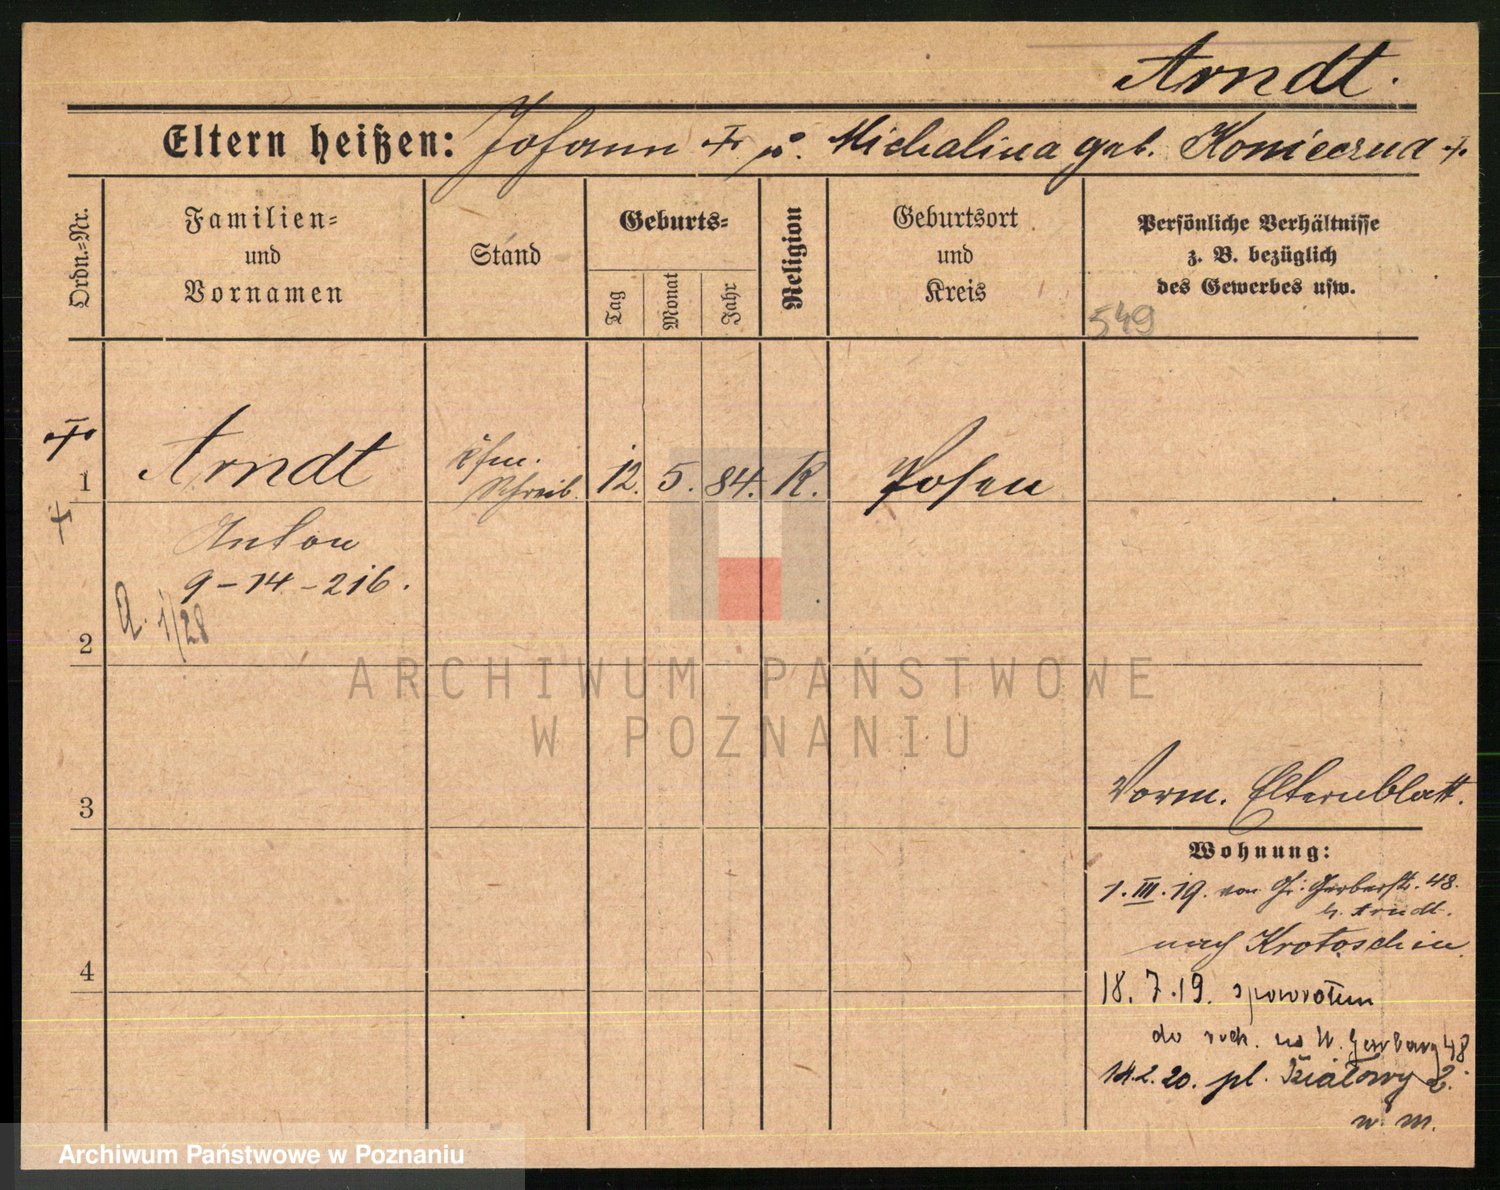 Arndt.
Eltern heißen: Johann + u. Michalina geb. Konieczna +
Ordn.-Nr.
Familien-
und
Vornamen
Stand
Geburts-
Tag
Monat
Jahr
Religion
Geburtsort
und
Kreis
Persönliche Verhältnisse
z. B. bezüglich
des Gewerbes usw.
549
1 Arndt
Kfm.
Schreib. 12. 5. 84. K. Posen
Anton
9-14-216.
A. 1/28
2
3
4
Vorm. Elternblatt.
Wohnung:
1. III. 19. von Gr. Gerberstr. 48.
b. Arndt.
nach Krotoschin.
18. 7. 19. spowrotem
do rodz. na W. Garbary 48
14.2.20. pl. Działowy 2.
w. m.
ARCHIWUM PAŃSTWOWE
W POZNANIU
Archiwum Państwowe w Poznaniu